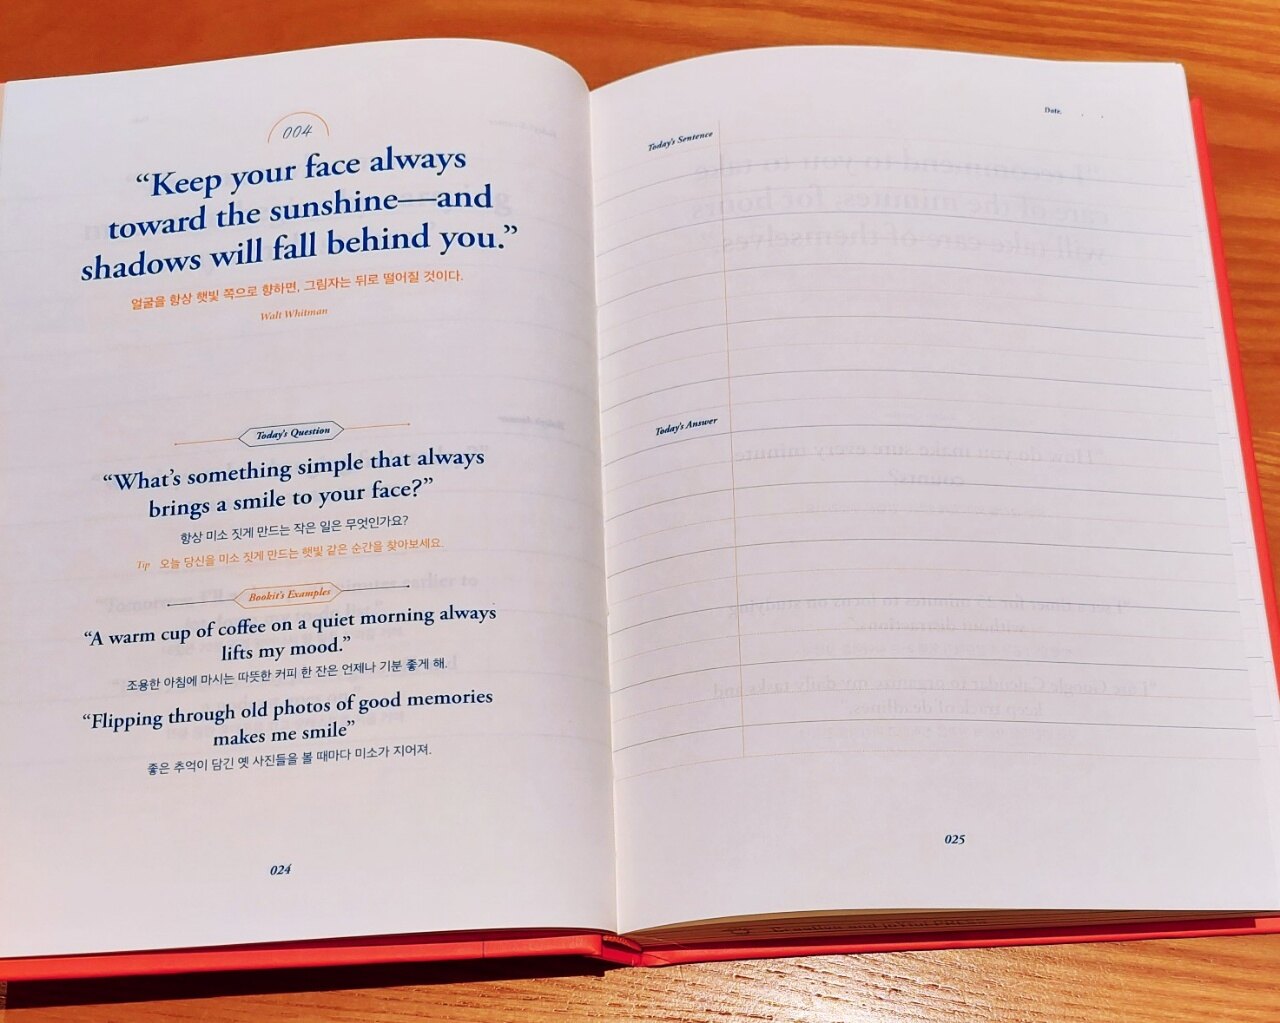 004
“Keep your face always
toward the sunshine—and
shadows will fall behind you.”
얼굴을 항상 햇빛 쪽으로 향하면, 그림자는 뒤로 떨어질 것이다.
Walt Whitman
Today's Question
“What's something simple that always
brings a smile to your face?”
항상 미소 짓게 만드는 작은 일은 무엇인가요?
Tip 오늘 당신을 미소 짓게 만드는 햇빛 같은 순간을 찾아보세요.
Bookit's Examples
“A warm cup of coffee on a quiet morning always
lifts my mood.”
조용한 아침에 마시는 따뜻한 커피 한 잔은 언제나 기분 좋게 해.
“Flipping through old photos of good memories
makes me smile”
좋은 추억이 담긴 옛 사진들을 볼 때마다 미소가 지어져.
024
Date. . .
Today's Sentence
Today's Answer
025